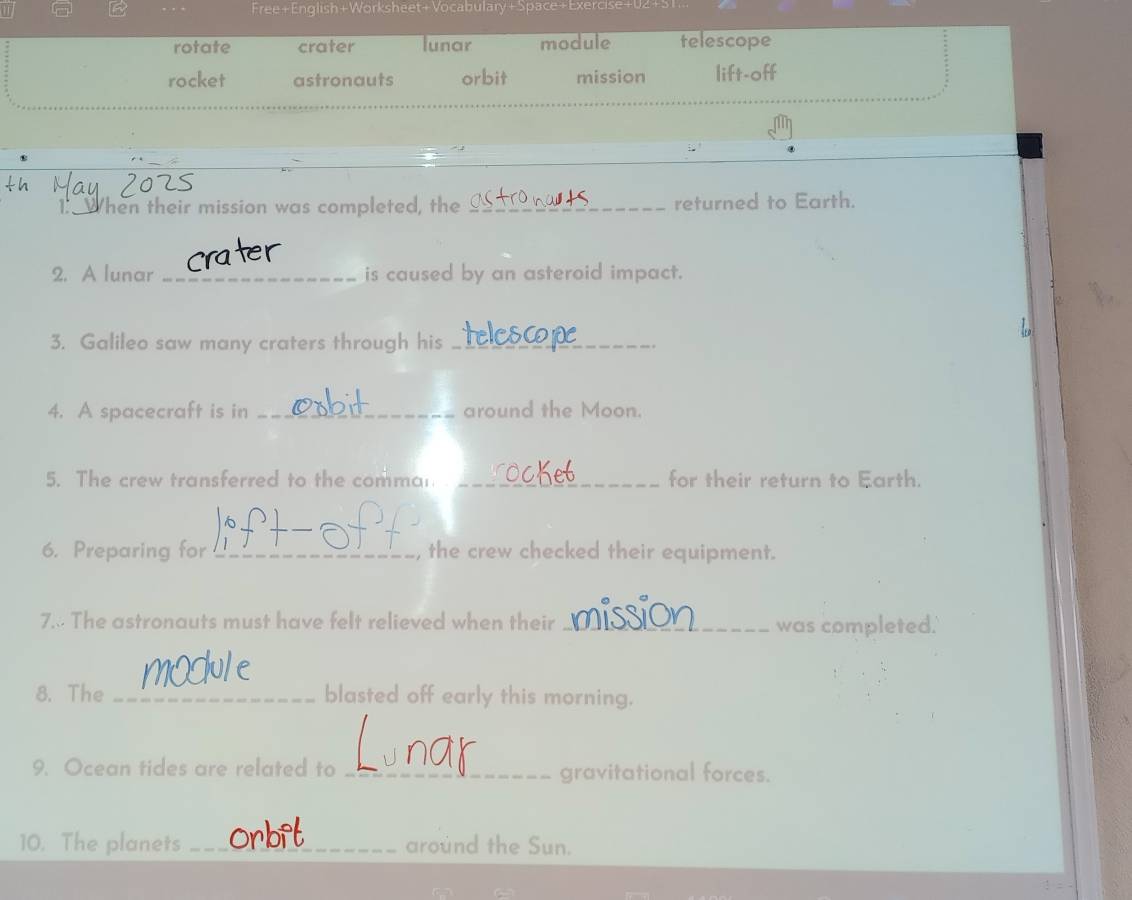 Free+English+Worksheet+Vocabulary+Space+Exercise+02+ST...
rotate crater lunar module telescope
rocket astronauts orbit mission lift-off
th May 2025
1. When their mission was completed, the astronauts returned to Earth.
2. A lunar crater is caused by an asteroid impact.
3. Galileo saw many craters through his telescope.
4. A spacecraft is in orbit around the Moon.
5. The crew transferred to the comman rocket for their return to Earth.
6. Preparing for lift-off, the crew checked their equipment.
7. The astronauts must have felt relieved when their mission was completed.
8. The module blasted off early this morning.
9. Ocean tides are related to Lunar gravitational forces.
10. The planets orbit around the Sun.